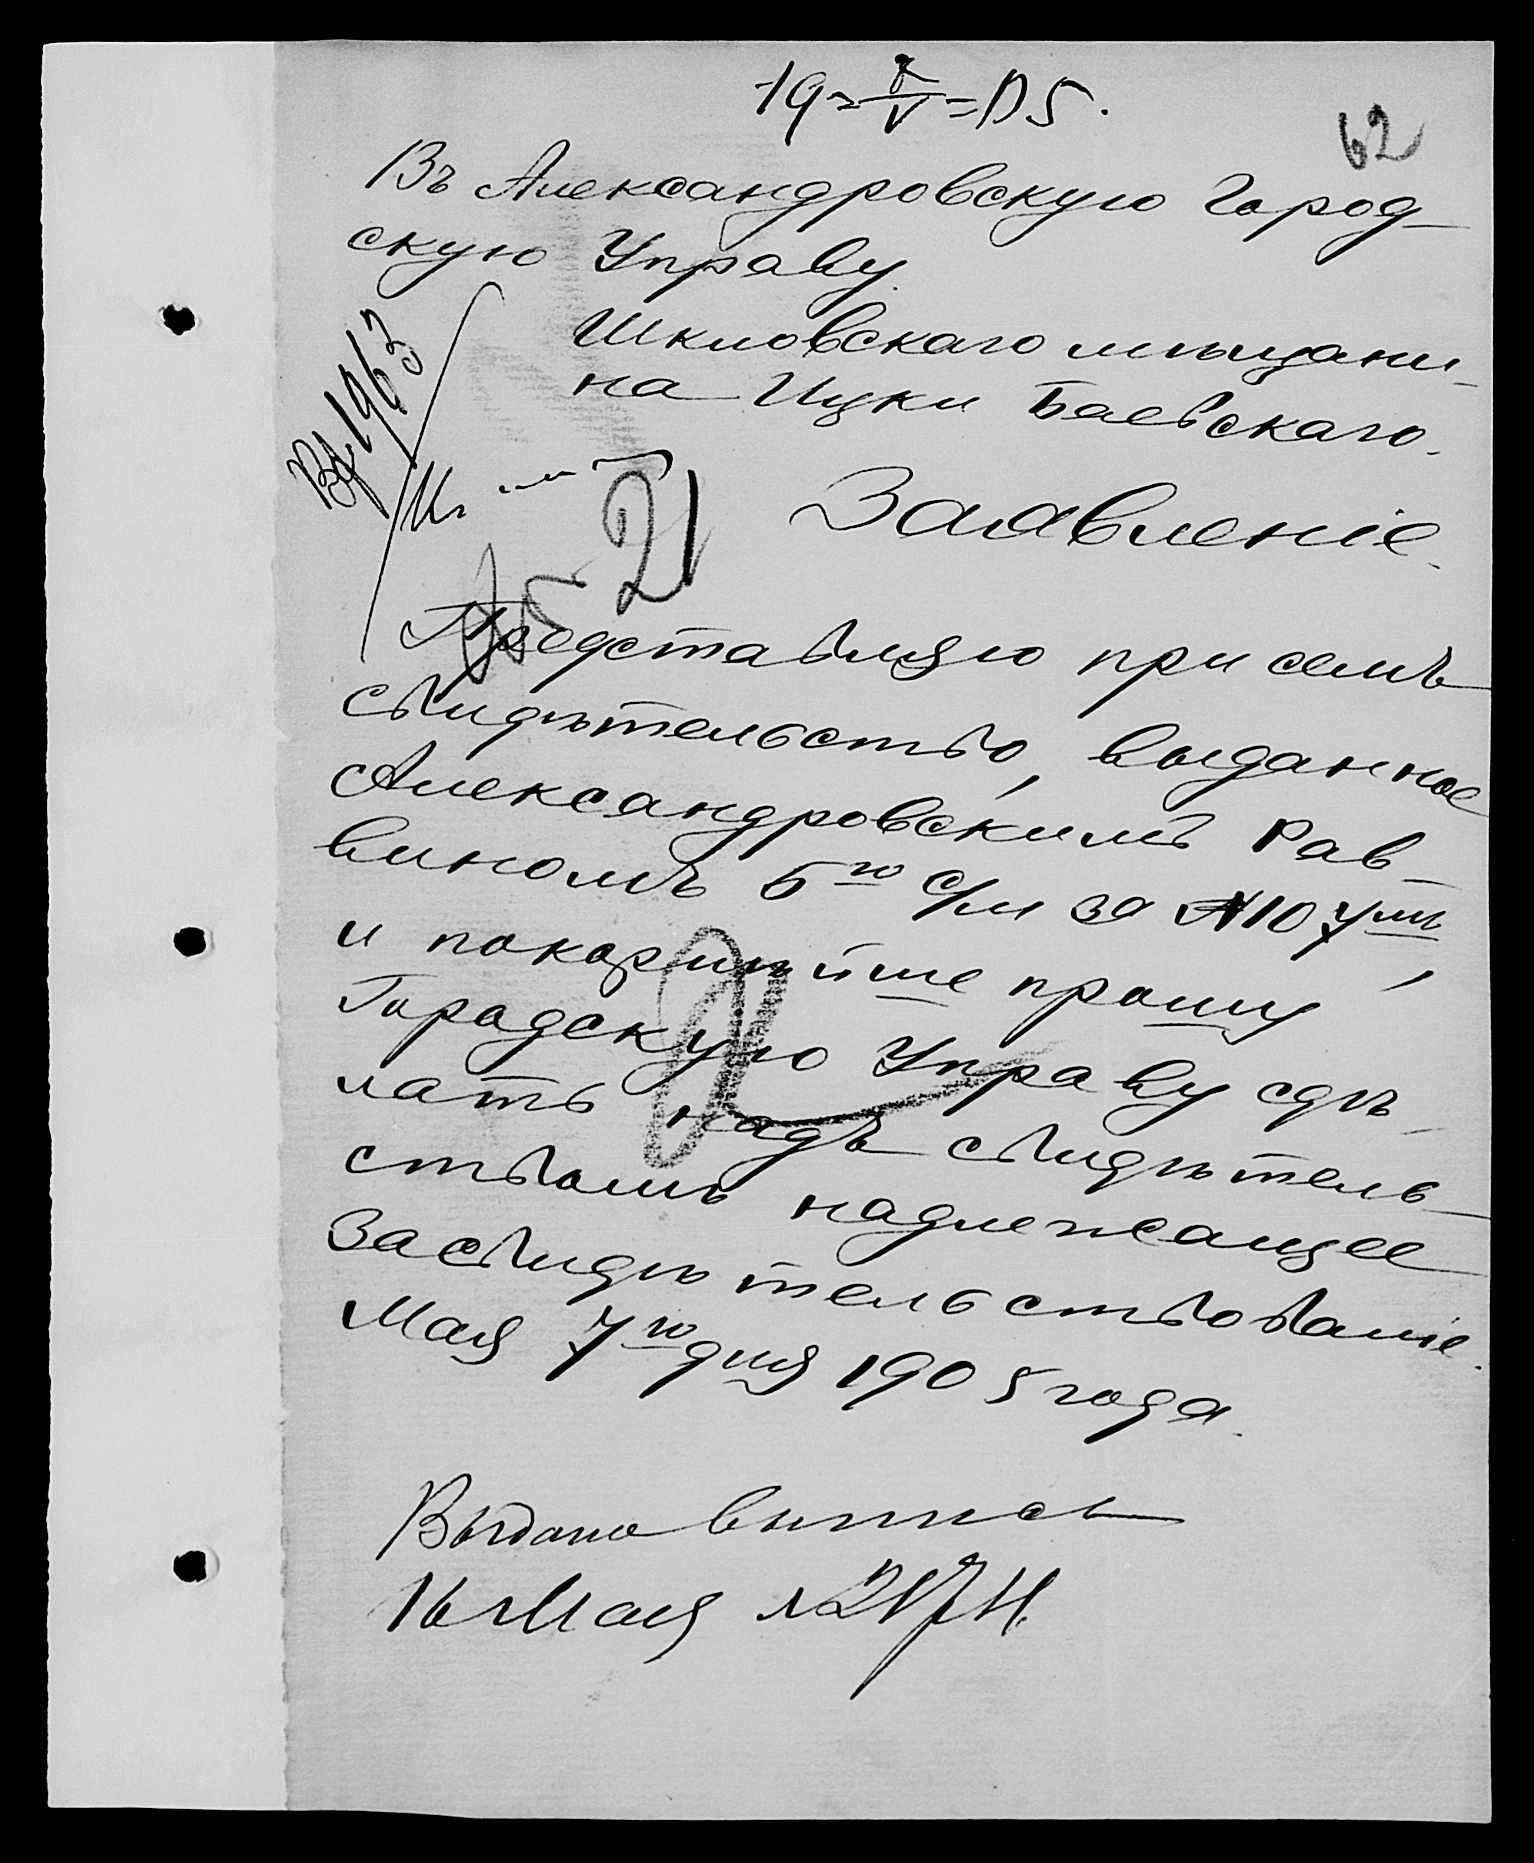 62
Въ Александровскую Город-
скую Управу.
Шкловскаго мѣщани-
на Ицки Баевскаго.
Вх. 1963
21
Заявленіе.
Представляю при семъ
свидѣтельство, выданное
Александровскимъ Рав-
виномъ 5го с/м за № 107мъ,
и покорнѣйше прошу
Городскую Управу сдѣ-
лать надъ свидѣтель-
ствомъ надлежащее
засвидѣтельствованіе.
Мая 7го дня 1905 года.
Выдана выпись
16 Мая